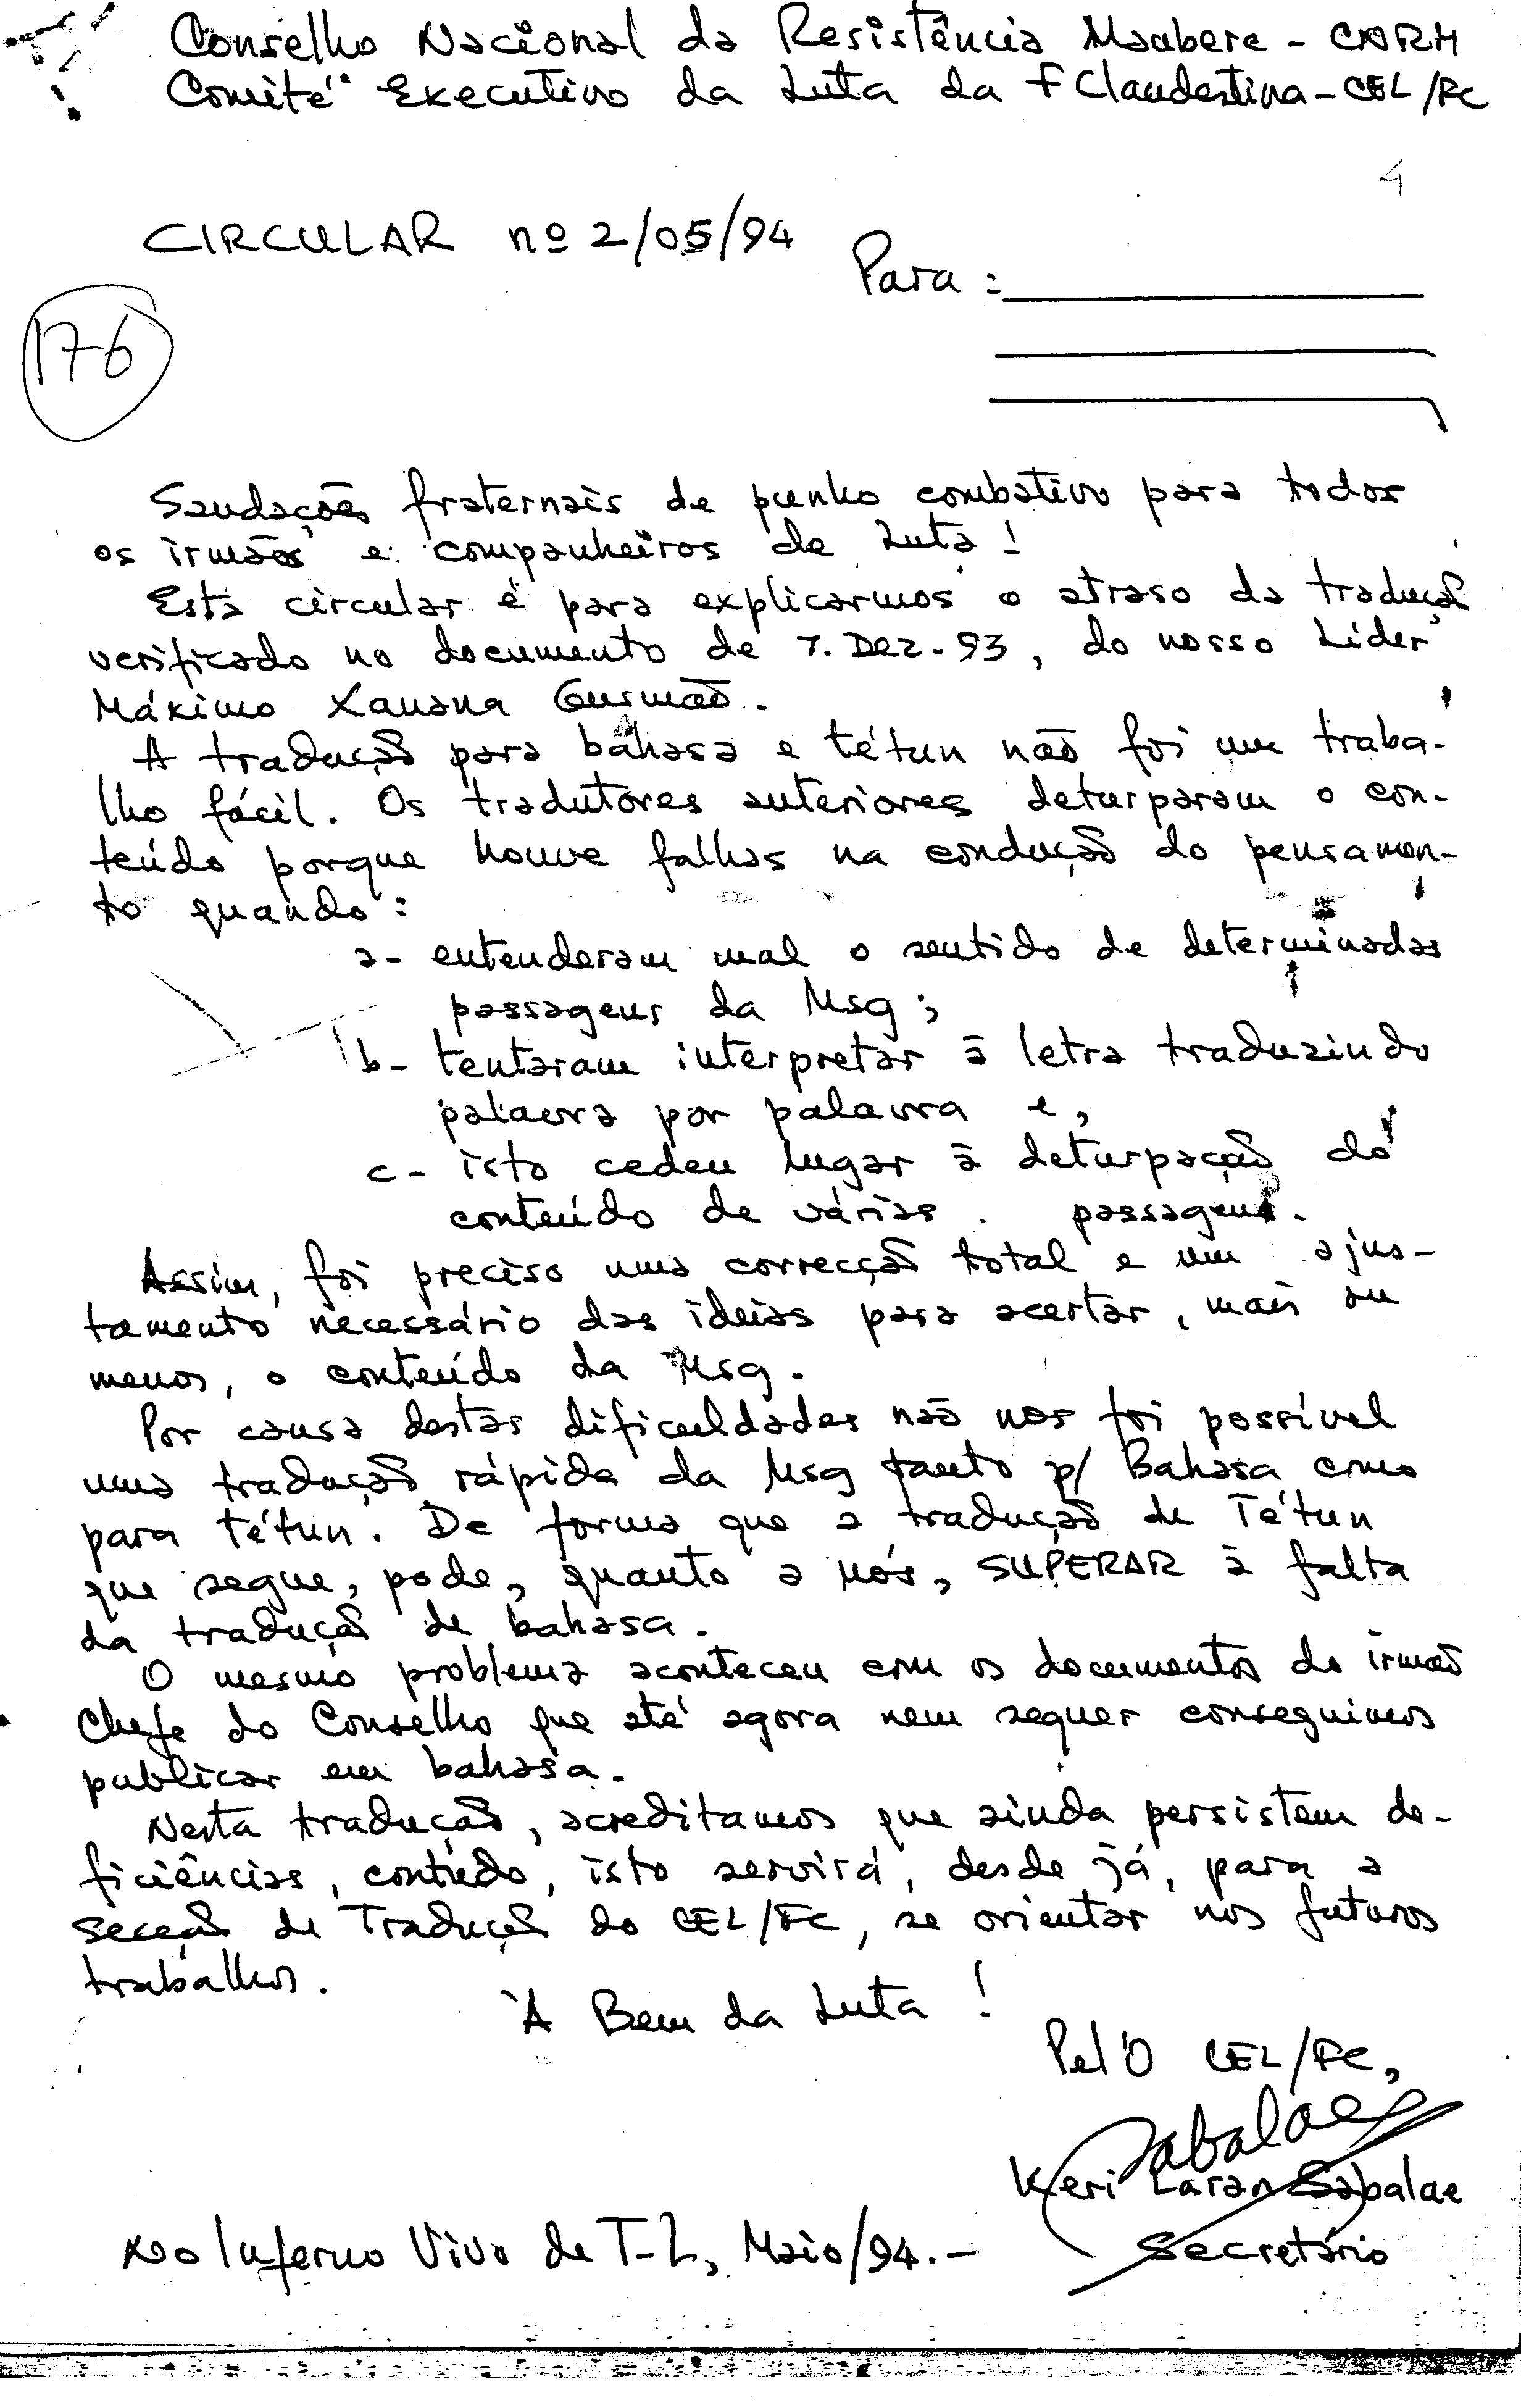 Conselho Nacional da Resistência Maubere - CNRM
Comité Executivo da Luta da F Clandestina - CEL/FC
4
CIRCULAR nº 2/05/94
Para :
176
Saudações fraternais de punho combativo para todos
os irmãos e companheiros de Luta !
Esta circular é para explicarmos o atraso da tradução
verificado no documento de 7. Dez. 93, do nosso Líder
Máximo Xanana Gusmão.
A tradução para bahasa e tétun não foi um traba-
lho fácil. Os tradutores anteriores deturparam o con-
teúdo porque houve falhas na condução do pensamen-
to quando :
a- entenderam mal o sentido de determinadas
passagens da Msg ;
b- tentaram interpretar à letra traduzindo
palavra por palavra e,
c- isto cedeu lugar à deturpação do
conteúdo de várias passagens.
Assim, foi preciso uma correcção total e um ajus-
tamento necessário das ideias para acertar, mais ou
menos, o conteúdo da Msg.
Por causa destas dificuldades não nos foi possível
uma tradução rápida da Msg tanto p/ Bahasa como
para tétun. De forma que a tradução de Tétun
que segue, pode, quanto a nós, SUPERAR à falta
da tradução de bahasa.
O mesmo problema aconteceu com os documentos do irmão
Chefe do Conselho que até agora nem sequer conseguimos
publicar em bahasa.
Nesta tradução, acreditamos que ainda persistem de-
ficiências, contudo, isto servirá, desde já, para a
Secção de Tradução do CEL/FC, se orientar nos futuros
trabalhos.
À Bem da Luta !
Pel'O CEL/FC,
Sabalae
Keri Laran Sabalae
Secretário
No Inferno Vivo de T-L, Maio/94.-